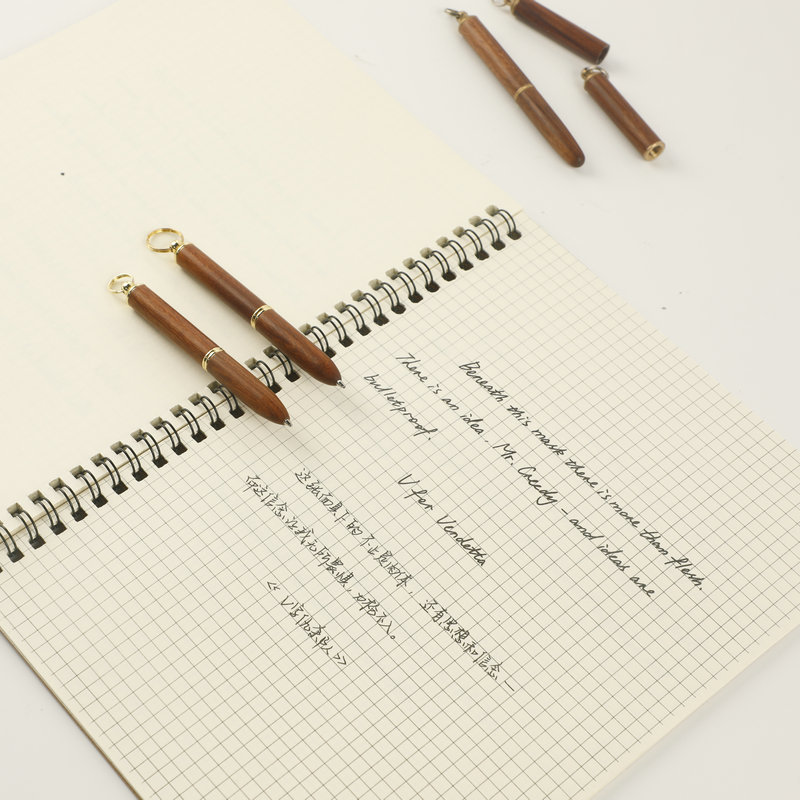 Beneath this mask there is more than flesh.
There is an idea, Mr. Creedy - and ideas are
bulletproof.
V for Vendetta
这张面具下的不止是肉体，还有思想和信念—
而这信念 刀枪不入。
《V字仇杀队》